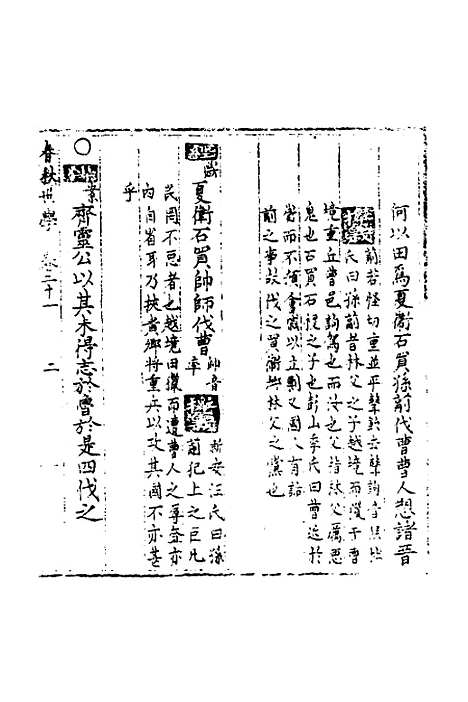 何以田爲夏衛石買孫蒯代曹曹人愬諸晉
蒯苦怪切重並平聲飲去聲詢音
氏曰孫蒯昔林父之子越境而獵于曹
境重丘曹邑詢罵也而汝也父指林父厲惡
鬼也石買石稷之子也彭山季氏曰曹近於
衛而不預會盟以立剽又國人有詬
蒯之事故伐之買衛與林父之黨也
夏衛石買帥師伐曹
帥音率
新安汪氏曰孫
蒯犯上之臣凡
民罔不惡者也越境田獵而遭曹人之辱盍亦
內自省耳乃挾貴卿將重兵以攻其國不亦甚
乎
齊靈公以其未得志於魯於是四伐之
春秋世學 卷二十一 二